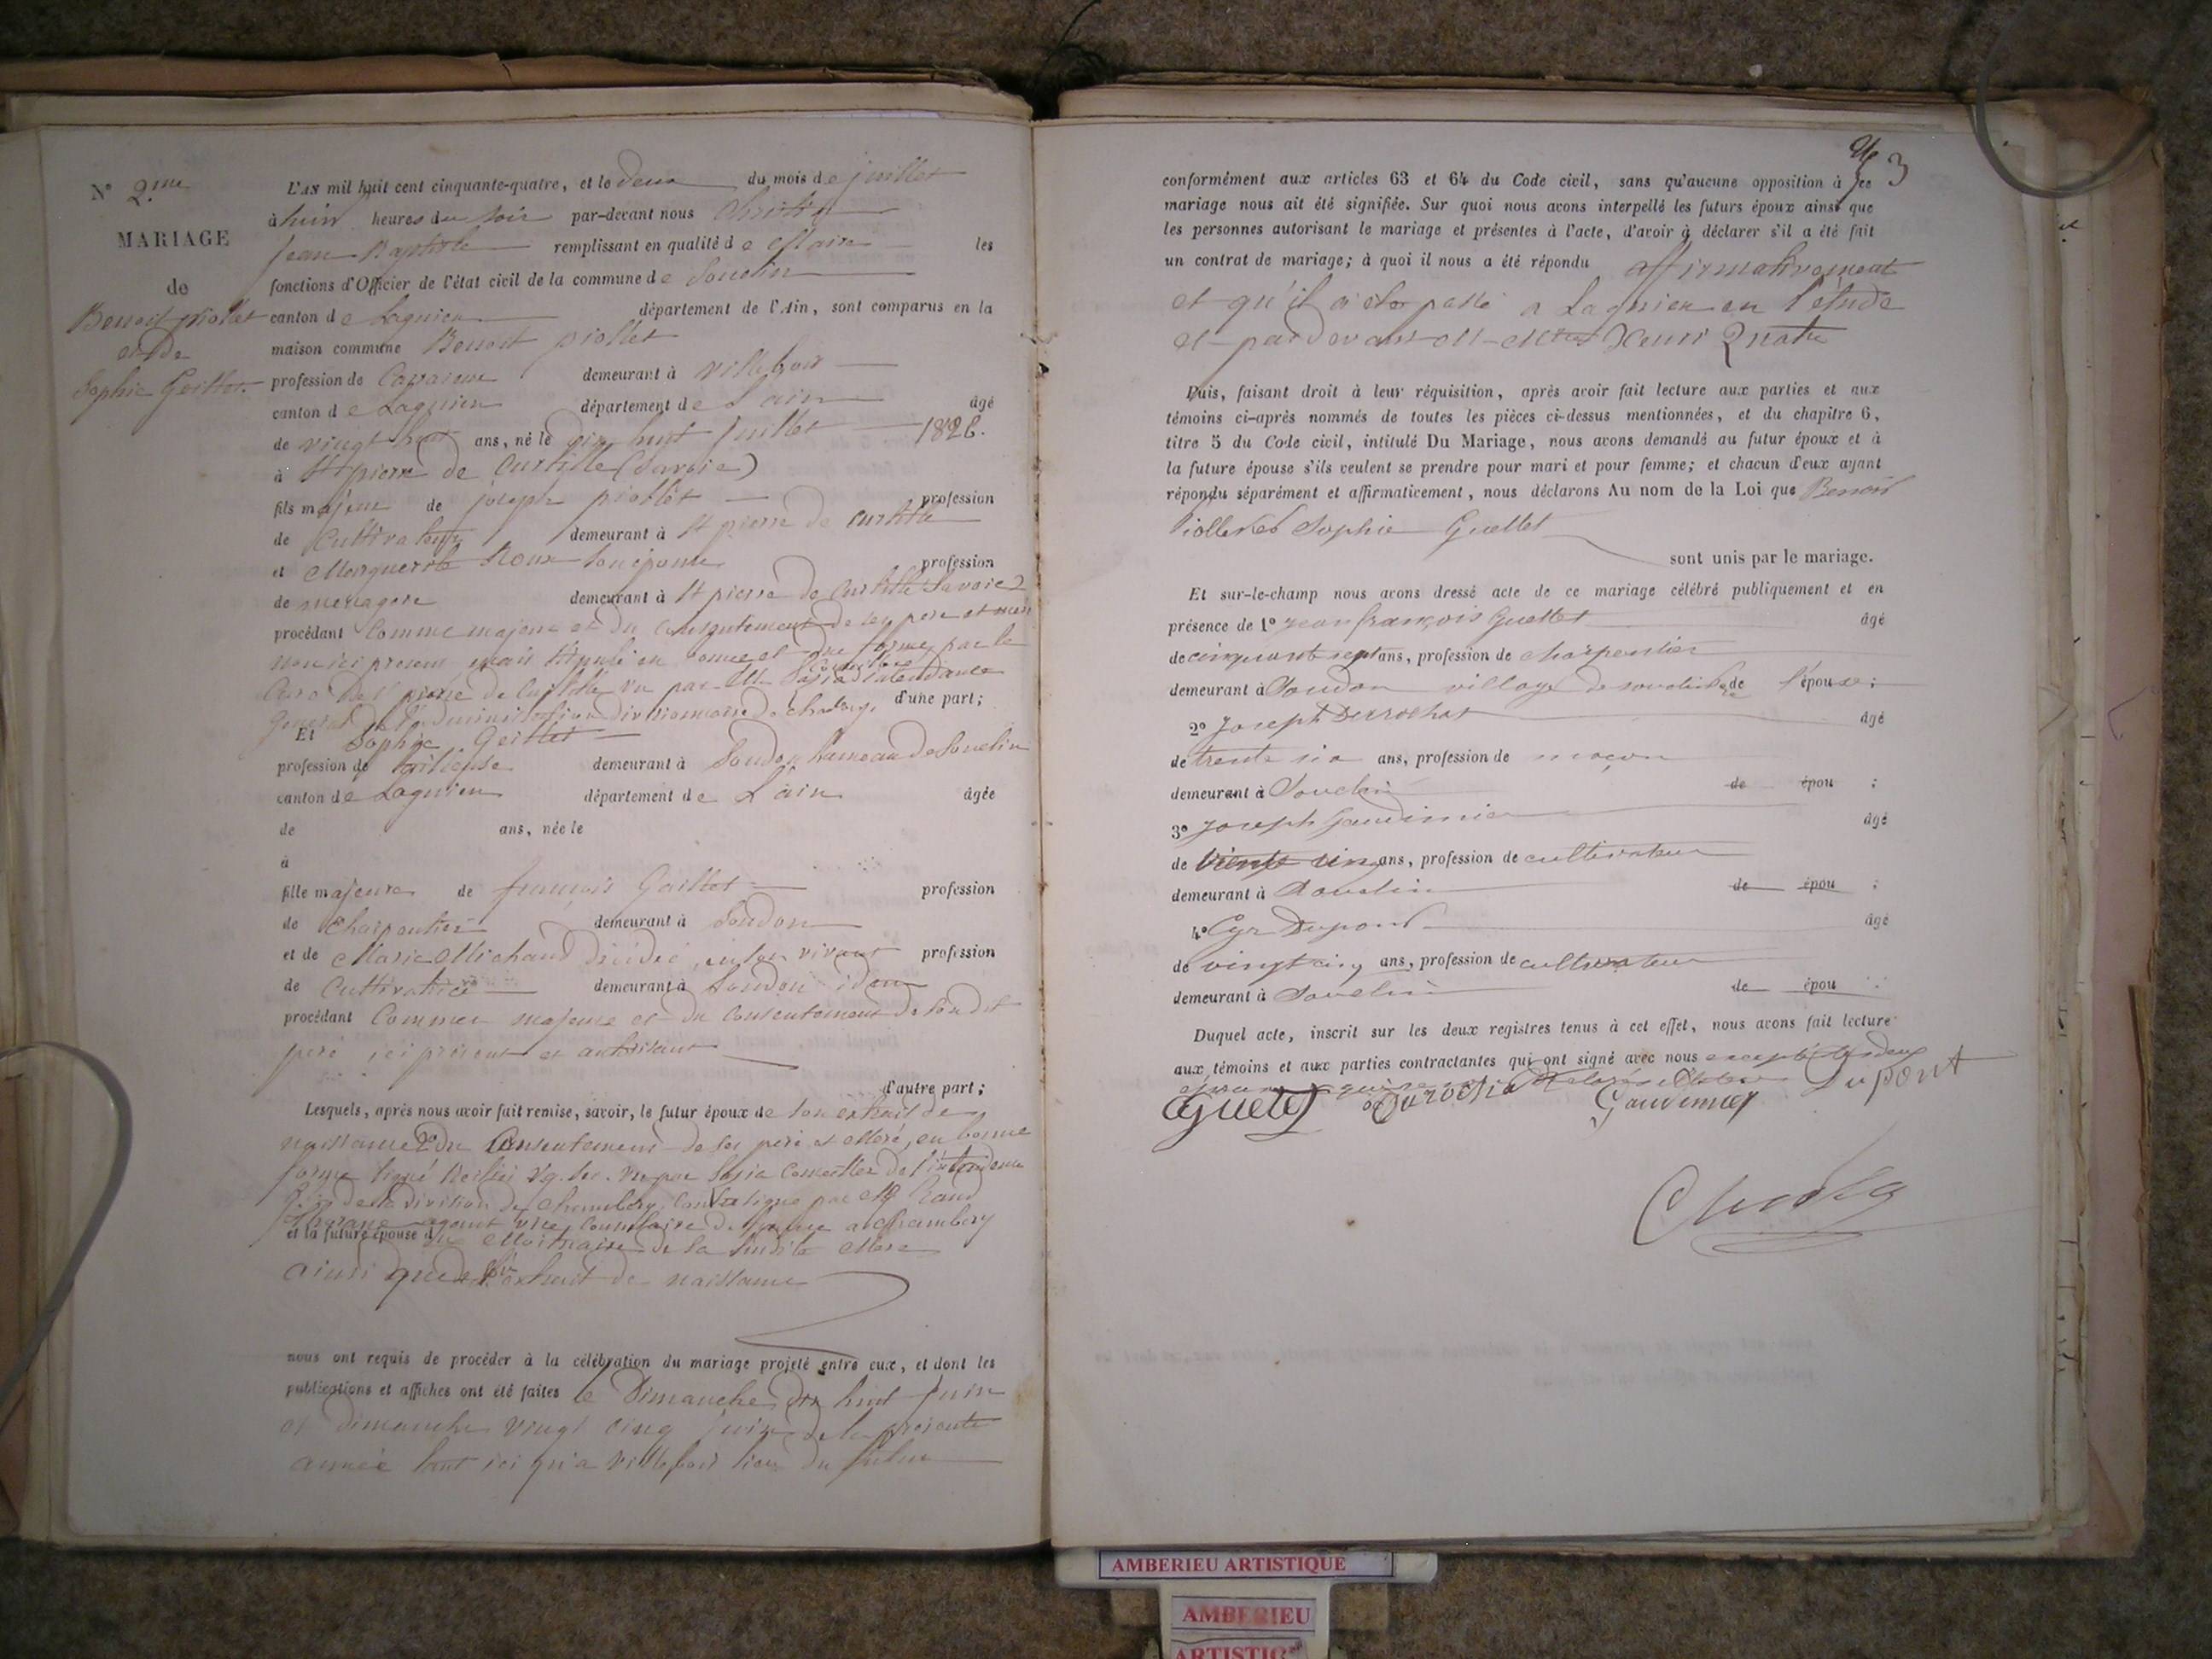 N° 2.me
MARIAGE
de
Benoit piollet
et de
Sophie Geillet.
L'AN mil huit cent cinquante-quatre, et le deux du mois de juillet
à huit heures du soir par-devant nous
Jean Baptiste remplissant en qualité de Maire les
fonctions d'Officier de l'état civil de la commune de Souclin
canton de Lagnieu département de l'Ain, sont comparus en la
maison commune Benoit piollet
profession de demeurant à villebois
canton de Lagnieu département de L'ain âgé
de vingt huit ans, né le dix huit juillet 1826.
à St pierre de Curtille (Savoie)
fils majeur de joseph piollet profession
de Cultivateur demeurant à St pierre de Curtille
et Marguerite Roux son épouse profession
de menagere demeurant à St pierre de Curtille Savoie
procédant comme majeur et du consentement de ses pere et mere
non ici present mais stipulé en bonne et due forme par le
Curé de St pierre de Curtille vu par
general de l'administration divisionnaire de chambery, d'une part;
Et Sophie Geillet
profession de tailleuse demeurant à Soudon hameau de Souclin
canton de Lagnieu département de L'ain âgée
de ans, née le
à
fille majeure de françois Geillet profession
de Charpentier demeurant à Soudon
et de Marie Michaud décédée, en son vivant profession
de Cultivatrice demeurant à Soudon idem
procédant Comme majeure et du Consentement de son dit
pere ici présent et autorisant
d'autre part;
Lesquels, après nous avoir fait remise, savoir, le futur époux de son extrait de
naissance du Consentement de ses pere et Mere, en bonne
forme signé vu par de l'intendance
de la division de Chambery, par
agent vice Consulaire de a Chambery
et la future épouse du Mortuaire de la susdite Mere
ainsi que de l'extrait de naissance
nous ont requis de procéder à la célébration du mariage projeté entre eux, et dont les
publications et affiches ont été faites le Dimanche dix huit juin
et dimanche vingt cinq juin de la presente
année tant ici qu'a Villebois lieu du futur
3
conformément aux articles 63 et 64 du Code civil, sans qu'aucune opposition à ce
mariage nous ait été signifiée. Sur quoi nous avons interpellé les futurs époux ainsi que
les personnes autorisant le mariage et présentes à l'acte, d'avoir à déclarer s'il a été fait
un contrat de mariage; à quoi il nous a été répondu affirmativement
et qu'il a été passé a Lagnieu en l'étude
et pardevant Henri
Puis, faisant droit à leur réquisition, après avoir fait lecture aux parties et aux
témoins ci-après nommés de toutes les pièces ci-dessus mentionnées, et du chapitre 6,
titre 5 du Code civil, intitulé Du Mariage, nous avons demandé au futur époux et à
la future épouse s'ils veulent se prendre pour mari et pour femme; et chacun d'eux ayant
répondu séparément et affirmativement, nous déclarons Au nom de la Loi que Benoit
Piollet et Sophie Guellet
sont unis par le mariage.
Et sur-le-champ nous avons dressé acte de ce mariage célébré publiquement et en
présence de 1° Jean françois Guellet âgé
de cinquante sept ans, profession de charpentier
demeurant à Soudon village de souclin de l'épouse;
2° Joseph Derrochas âgé
de trente six ans, profession de maçon
demeurant à Souclin de épou ;
3° Joseph Gaudimier âgé
de trente cinq ans, profession de cultivateur
demeurant à Souclin de épou ;
4° Cyr Dupont âgé
de vingt cinq ans, profession de cultivateur
demeurant à Souclin de épou ;
Duquel acte, inscrit sur les deux registres tenus à cet effet, nous avons fait lecture
aux témoins et aux parties contractantes qui ont signé avec nous excepté les deux
époux
Guelet Gaudimier Dupont
AMBERIEU ARTISTIQUE
AMBERIEU
ARTISTIQ